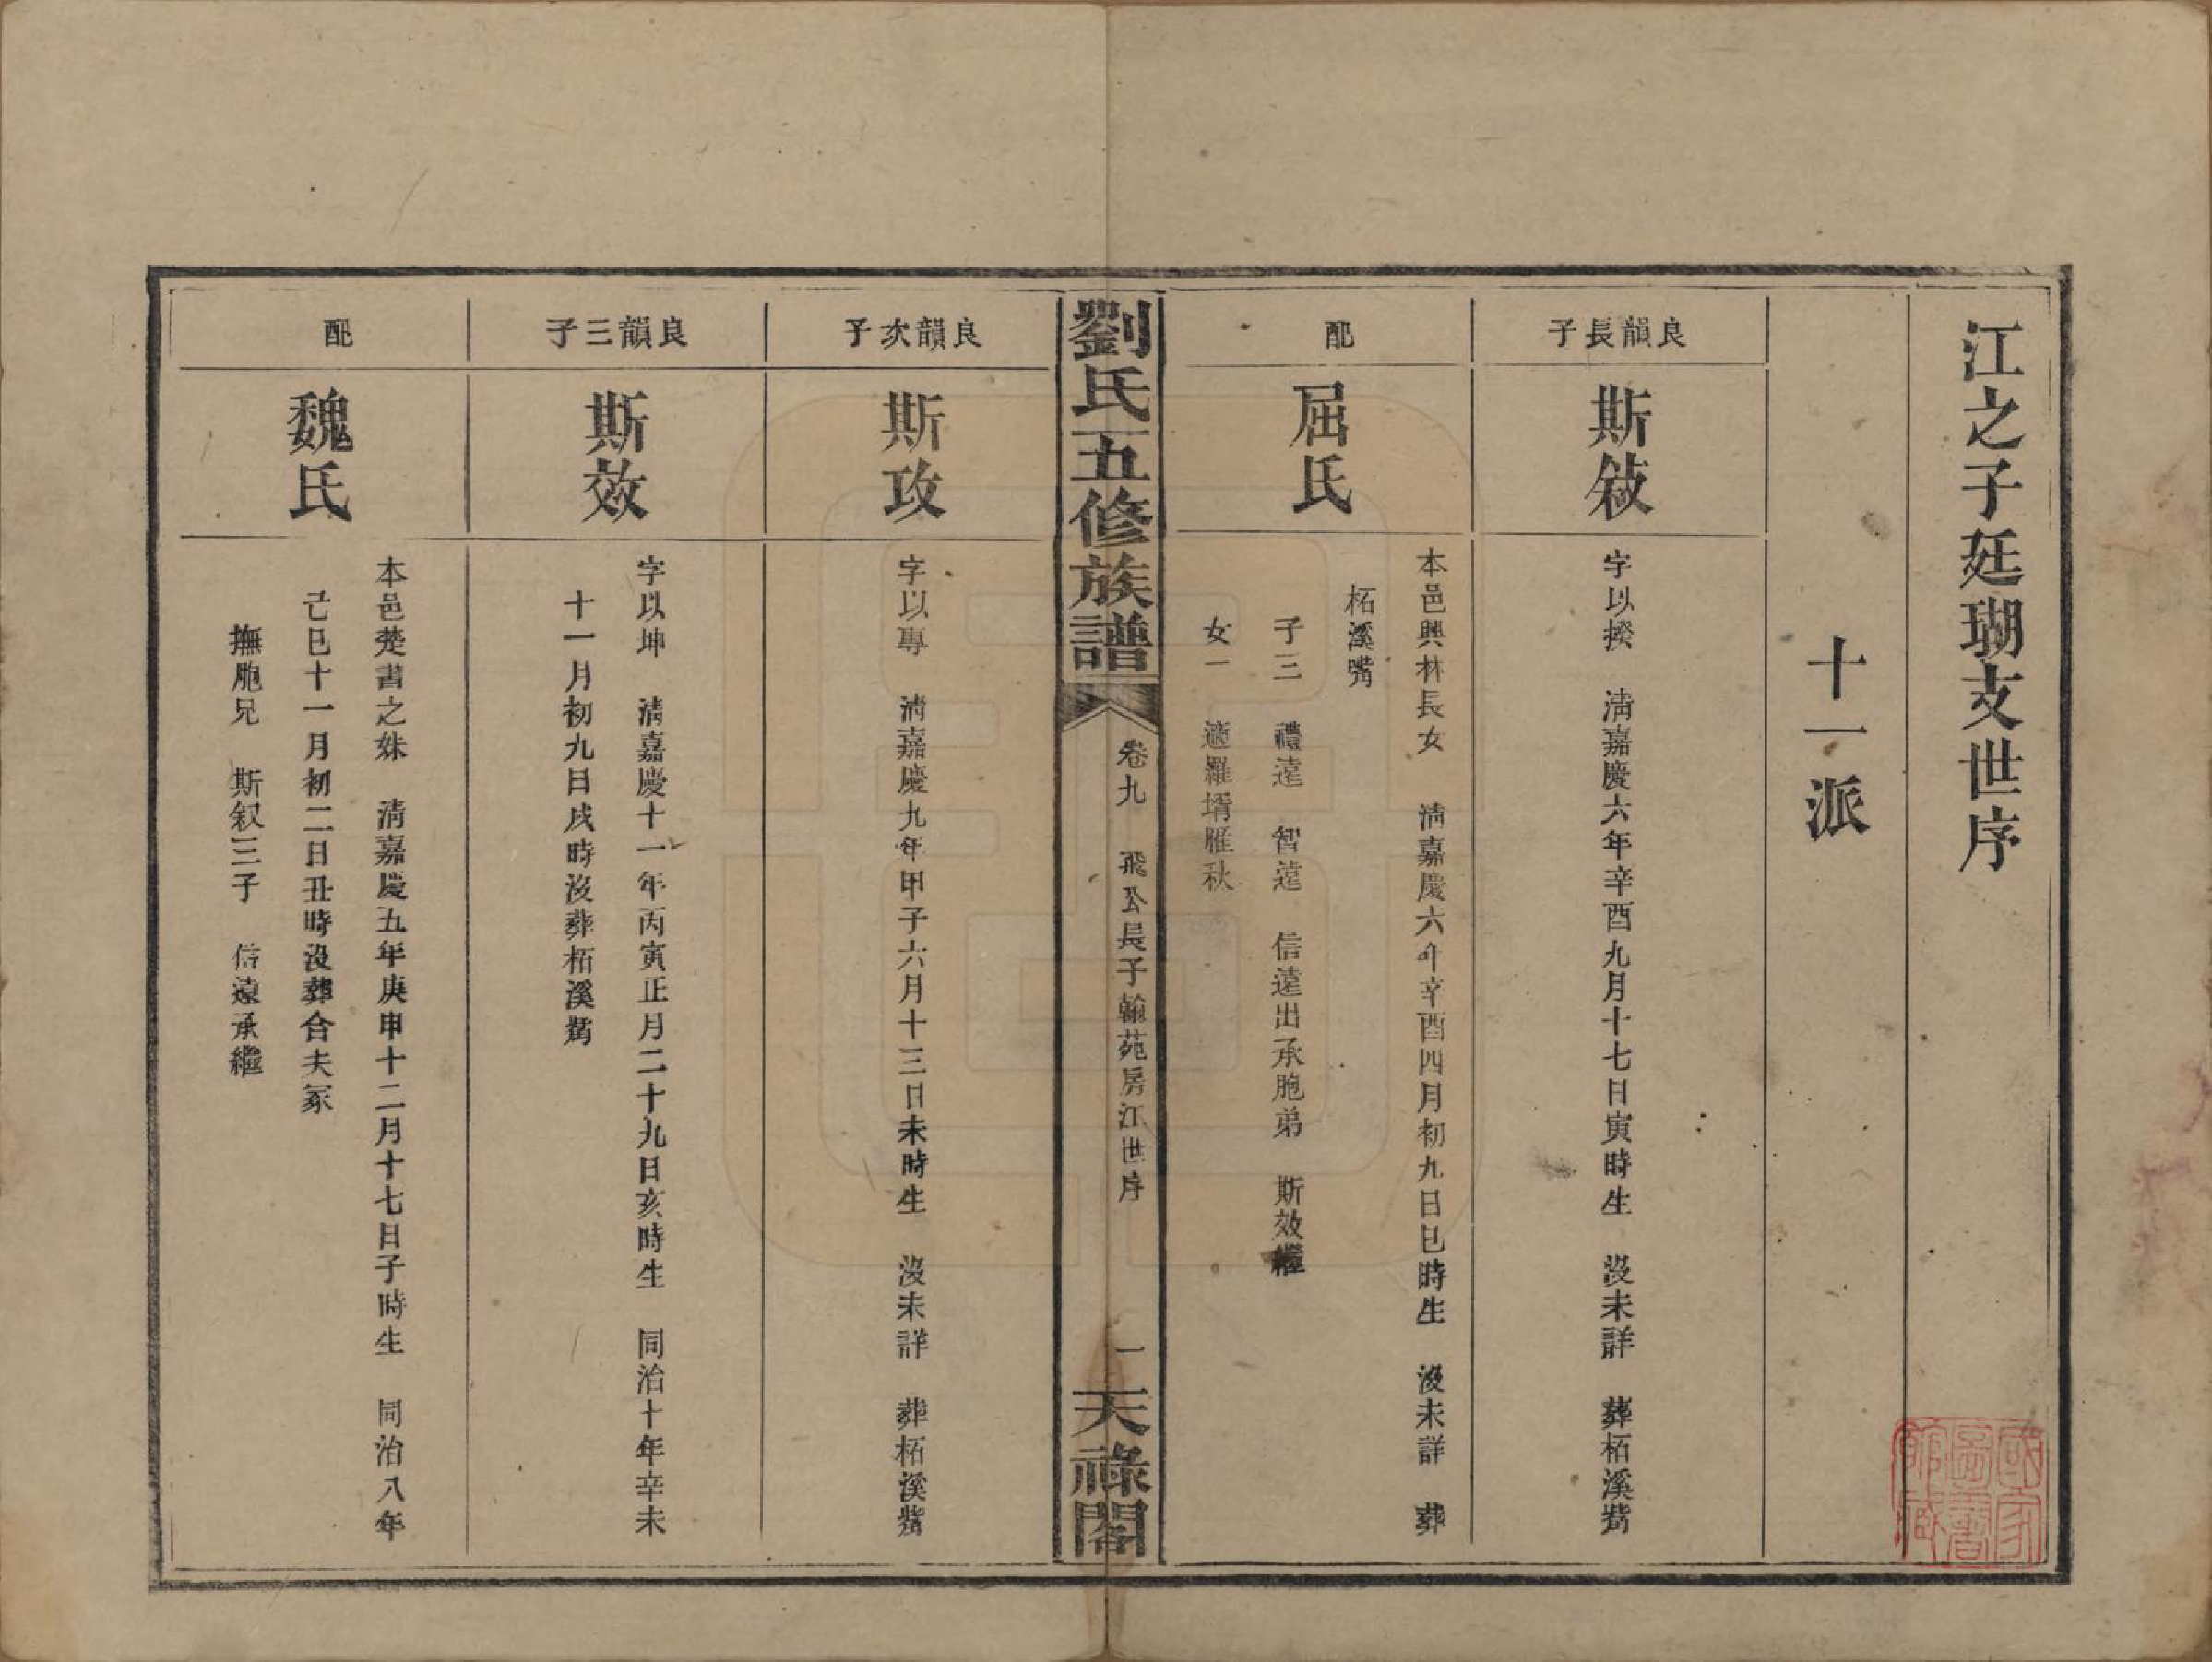 江之子廷瑚支世序
十一派
良韻長子
斯敍
字以揆　清嘉慶六年辛酉九月十七日寅時生　沒未詳　葬柘溪嘴
配
屈氏
本邑興林長女　清嘉慶六年辛酉四月初九日巳時生　沒未詳　葬
柘溪嘴
子三　禮遠　智遠　信遠出承胞弟　斯效繼
女一　適羅壻雁秋
劉氏五修族譜
卷九　飛公長子翰苑房江世序
一
天祿閣
良韻次子
斯攻
字以專　清嘉慶九年甲子六月十三日未時生　沒未詳　葬柘溪嘴
良韻三子
斯效
字以坤　清嘉慶十一年丙寅正月二十九日亥時生　同治十年辛未
十一月初九日戌時沒葬柘溪嘴
配
魏氏
本邑楚書之妹　清嘉慶五年庚申十二月十七日子時生　同治八年
己巳十一月初二日丑時沒葬合夫冢
撫胞兄　斯叙三子　信遠承繼
國家圖書館藏